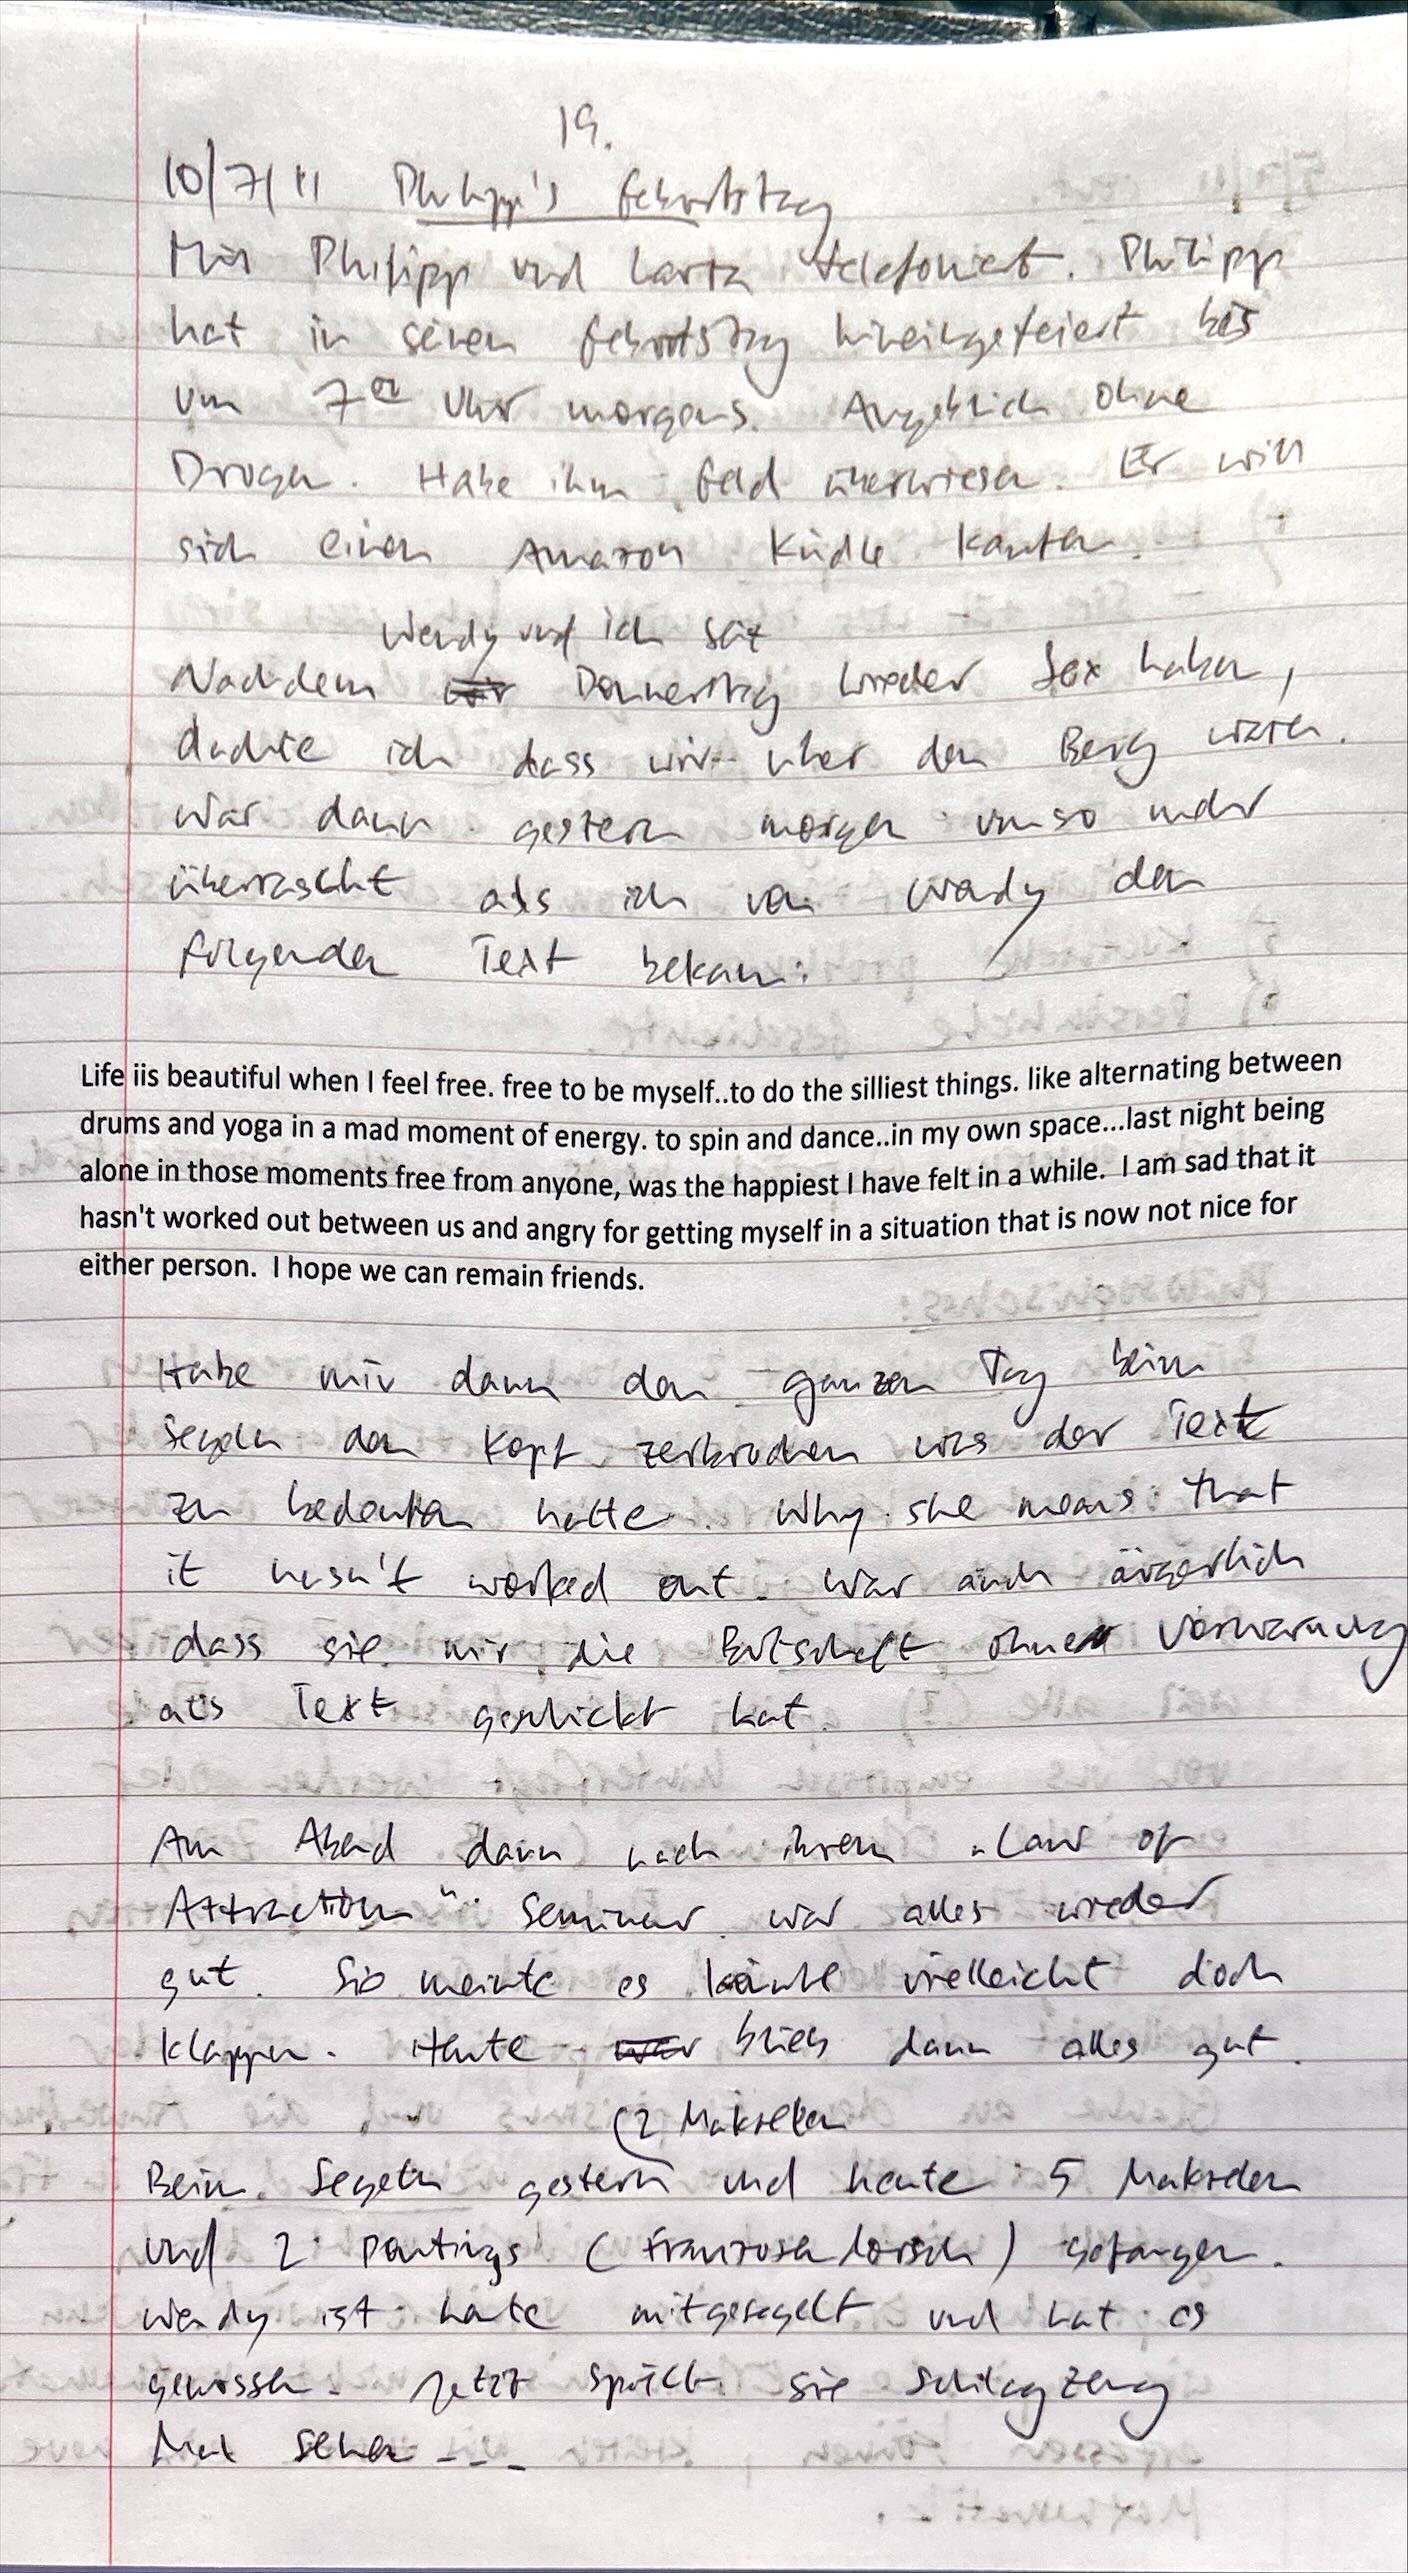 19.
10/7/11 Philipp's Geburtstag
Mit Philipp und telefoniert. Philipp
hat in seinen Geburtstag hineingefeiert bis
um 7 00 Uhr morgens. Angeblich ohne
Drogen. Habe ihm Geld überwiesen. Er will
sich einen Amazon Kindle kaufen.
Wendy und ich seit
Nachdem wir Donnerstag wieder Sex haben,
dachte ich dass wir über den Berg wären.
War dann gestern morgen umso mehr
überrascht als ich von Wendy den
folgenden Text bekam:
Life iis beautiful when I feel free. free to be myself..to do the silliest things. like alternating between
drums and yoga in a mad moment of energy. to spin and dance..in my own space...last night being
alone in those moments free from anyone, was the happiest I have felt in a while.  I am sad that it
hasn't worked out between us and angry for getting myself in a situation that is now not nice for
either person.  I hope we can remain friends.
Habe mir dann den ganzen Tag beim
Segeln den Kopf zerbrochen was der Text
zu bedeuten hatte. Why she means that
it hasn't worked out. War auch ärgerlich
dass sie mir die Botschaft ohne Vorwarnung
als Text geschickt hat.
Am Abend dann nach ihrem "Law of
Attraction" Seminar war alles wieder
gut. Sie meinte es könnte vielleicht doch
klappen. Heute war blieb dann alles gut.
(2 Makrelen
Beim Segeln gestern und heute 5 Makrelen
und 2 poutings (Franzosendorsch) gefangen.
Wendy ist heute mitgesegelt und hat es
genossen. Jetzt spielt sie Schlagzeug
Mal sehen ---